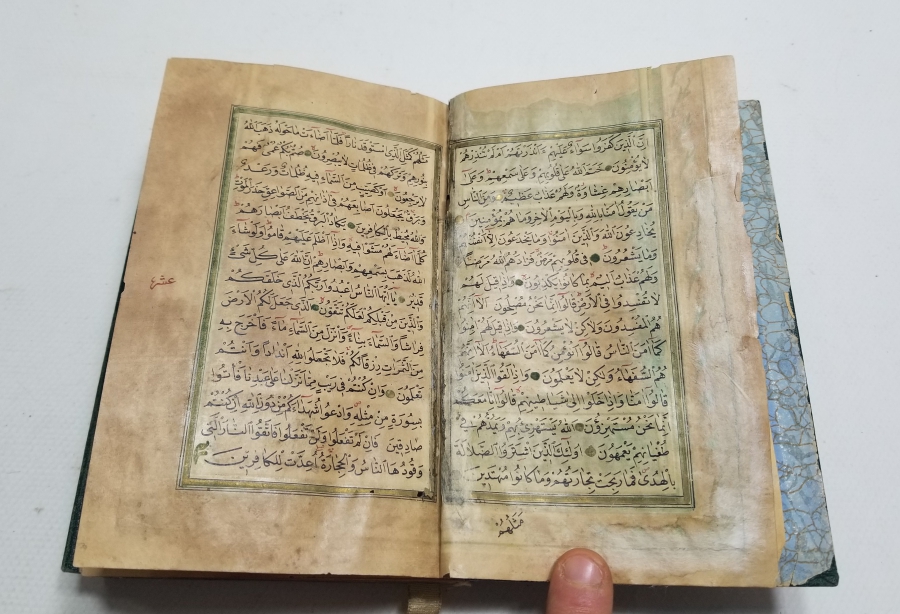 اِنَّ الَّذِينَ كَفَرُوا سَوَاءٌ عَلَيْهِمْ ءَاَنْذَرْتَهُمْ اَمْ لَمْ تُنْذِرْهُمْ
لَا يُؤْمِنُونَ خَتَمَ اللّٰهُ عَلٰى قُلُوبِهِمْ وَعَلٰى سَمْعِهِمْ وَعَلٰى
اَبْصَارِهِمْ غِشَاوَةٌ وَلَهُمْ عَذَابٌ عَظِيمٌ وَمِنَ النَّاسِ
مَنْ يَقُولُ اٰمَنَّا بِاللّٰهِ وَبِالْيَوْمِ الْاٰخِرِ وَمَا هُمْ بِمُؤْمِنِينَ
يُخَادِعُونَ اللّٰهَ وَالَّذِينَ اٰمَنُوا وَمَا يَخْدَعُونَ اِلَّا اَنْفُسَهُمْ
وَمَا يَشْعُرُونَ فِى قُلُوبِهِمْ مَرَضٌ فَزَادَهُمُ اللّٰهُ مَرَضًا
وَلَهُمْ عَذَابٌ اَلِيمٌ بِمَا كَانُوا يَكْذِبُونَ وَاِذَا قِيلَ لَهُمْ
لَا تُفْسِدُوا فِى الْاَرْضِ قَالُوا اِنَّمَا نَحْنُ مُصْلِحُونَ اَلَا اِنَّهُمْ
هُمُ الْمُفْسِدُونَ وَلٰكِنْ لَا يَشْعُرُونَ وَاِذَا قِيلَ لَهُمْ اٰمِنُوا
كَمَا اٰمَنَ النَّاسُ قَالُوا اَنُؤْمِنُ كَمَا اٰمَنَ السُّفَهَاءُ اَلَا اِنَّهُمْ
هُمُ السُّفَهَاءُ وَلٰكِنْ لَا يَعْلَمُونَ وَاِذَا لَقُوا الَّذِينَ اٰمَنُوا
قَالُوا اٰمَنَّا وَاِذَا خَلَوْا اِلٰى شَيَاطِينِهِمْ قَالُوا اِنَّا مَعَكُمْ
اِنَّمَا نَحْنُ مُسْتَهْزِؤُنَ اَللّٰهُ يَسْتَهْزِئُ بِهِمْ وَيَمُدُّهُمْ فِى
طُغْيَانِهِمْ يَعْمَهُونَ اُولٰئِكَ الَّذِينَ اشْتَرَوُا الضَّلَالَةَ
بِالْهُدٰى فَمَا رَبِحَتْ تِجَارَتُهُمْ وَمَا كَانُوا مُهْتَدِينَ
مَثَلُهُمْ
مَثَلُهُمْ كَمَثَلِ الَّذِى اسْتَوْقَدَ نَارًا فَلَمَّا اَضَاءَتْ مَا حَوْلَهُ ذَهَبَ اللّٰهُ
بِنُورِهِمْ وَتَرَكَهُمْ فِى ظُلُمَاتٍ لَا يُبْصِرُونَ صُمٌّ بُكْمٌ عُمْىٌ فَهُمْ
لَا يَرْجِعُونَ اَوْ كَصَيِّبٍ مِنَ السَّمَاءِ فِيهِ ظُلُمَاتٌ وَرَعْدٌ
وَبَرْقٌ يَجْعَلُونَ اَصَابِعَهُمْ فِى اٰذَانِهِمْ مِنَ الصَّوَاعِقِ حَذَرَ الْمَوْتِ
وَاللّٰهُ مُحِيطٌ بِالْكَافِرِينَ يَكَادُ الْبَرْقُ يَخْطَفُ اَبْصَارَهُمْ
كُلَّمَا اَضَاءَ لَهُمْ مَشَوْا فِيهِ وَاِذَا اَظْلَمَ عَلَيْهِمْ قَامُوا وَلَوْ شَاءَ
اللّٰهُ لَذَهَبَ بِسَمْعِهِمْ وَاَبْصَارِهِمْ اِنَّ اللّٰهَ عَلٰى كُلِّ شَىْءٍ
قَدِيرٌ يَا اَيُّهَا النَّاسُ اعْبُدُوا رَبَّكُمُ الَّذِى خَلَقَكُمْ
وَالَّذِينَ مِنْ قَبْلِكُمْ لَعَلَّكُمْ تَتَّقُونَ اَلَّذِى جَعَلَ لَكُمُ الْاَرْضَ
فِرَاشًا وَالسَّمَاءَ بِنَاءً وَاَنْزَلَ مِنَ السَّمَاءِ مَاءً فَاَخْرَجَ بِهِ
مِنَ الثَّمَرَاتِ رِزْقًا لَكُمْ فَلَا تَجْعَلُوا لِلّٰهِ اَنْدَادًا وَاَنْتُمْ
تَعْلَمُونَ وَاِنْ كُنْتُمْ فِى رَيْبٍ مِمَّا نَزَّلْنَا عَلٰى عَبْدِنَا فَاْتُوا
بِسُورَةٍ مِنْ مِثْلِهِ وَادْعُوا شُهَدَاءَكُمْ مِنْ دُونِ اللّٰهِ اِنْ كُنْتُمْ
صَادِقِينَ فَاِنْ لَمْ تَفْعَلُوا وَلَنْ تَفْعَلُوا فَاتَّقُوا النَّارَ الَّتِى
وَقُودُهَا النَّاسُ وَالْحِجَارَةُ اُعِدَّتْ لِلْكَافِرِينَ
عشر